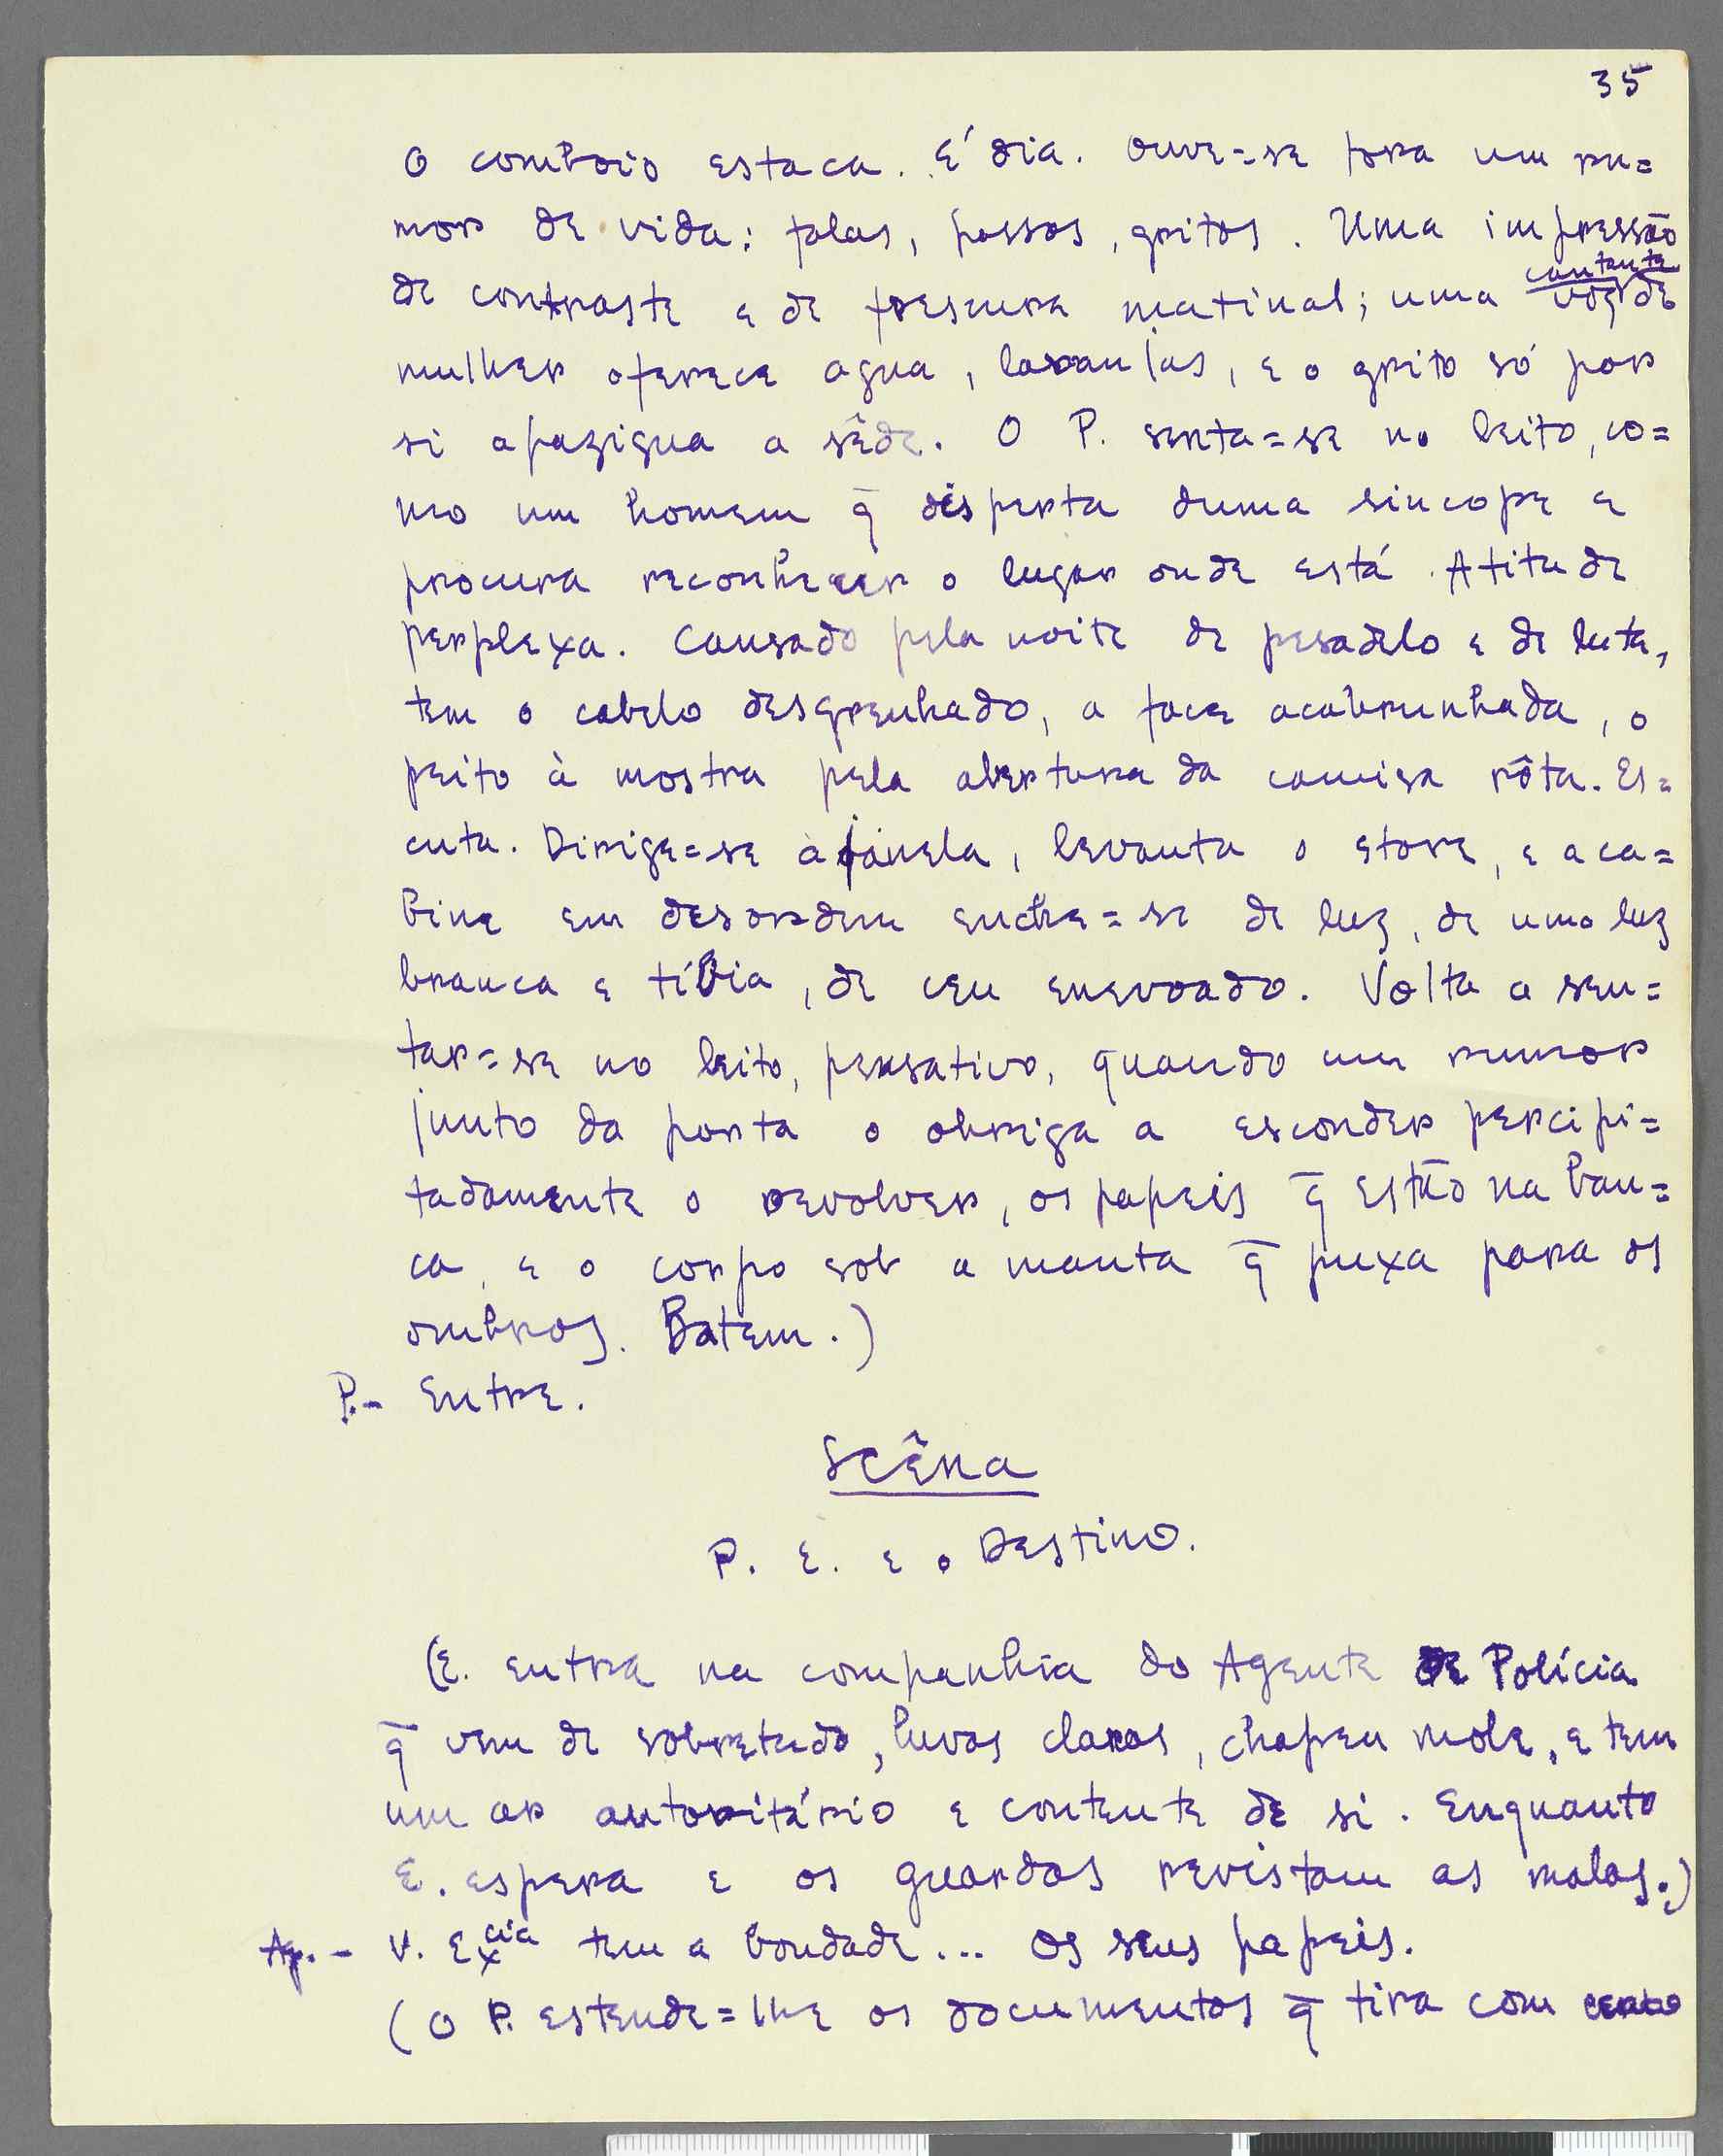 35
O comboio estaca. É dia. Ouve=se fora um ru=
mor de vida: falas, passos, gritos. Uma impressão
cantante
de contraste e de frescura matinal; uma voz de
mulher oferece agua, laranjas, e o grito só por
si apazigua a sêde. O P. senta=se no leito, co=
mo um homem q̄ disperta duma sincope e
procura reconhecer o lugar onde está. Atitude
perplexa. Cansado pela noite de pesadelo e de luta,
tem o cabelo desgrenhado, a face acabrunhada, o
peito à mostra pela abertura da camisa rôta. Es=
cuta. Dirige=se à janela, levanta o store, e a ca=
bine em desordem enche=se de luz, de uma luz
branca e tíbia, de ceu enevoado. Volta a sen=
tar=se no leito, pensativo, quando um rumor
junto da porta o obriga a esconder percipi=
tadamente o revolver, os papeis q̄ estão na ban=
ca, e o corpo sob a manta q̄ puxa para os
ombros. Batem.)
P.- Entre.
Scêna
P. E. e o Destino.
(E. entra na companhia do Agente de Polícia
q̄ vem de sobretudo, luvas claras, chapeu mole, e tem
um ar autoritário e contente de si. Enquanto
E. espera e os guardas revistam as malas.)
Ag. - V. Excia tem a bondade... Os seus papeis.
(O P. estende=lhe os documentos q̄ tira com